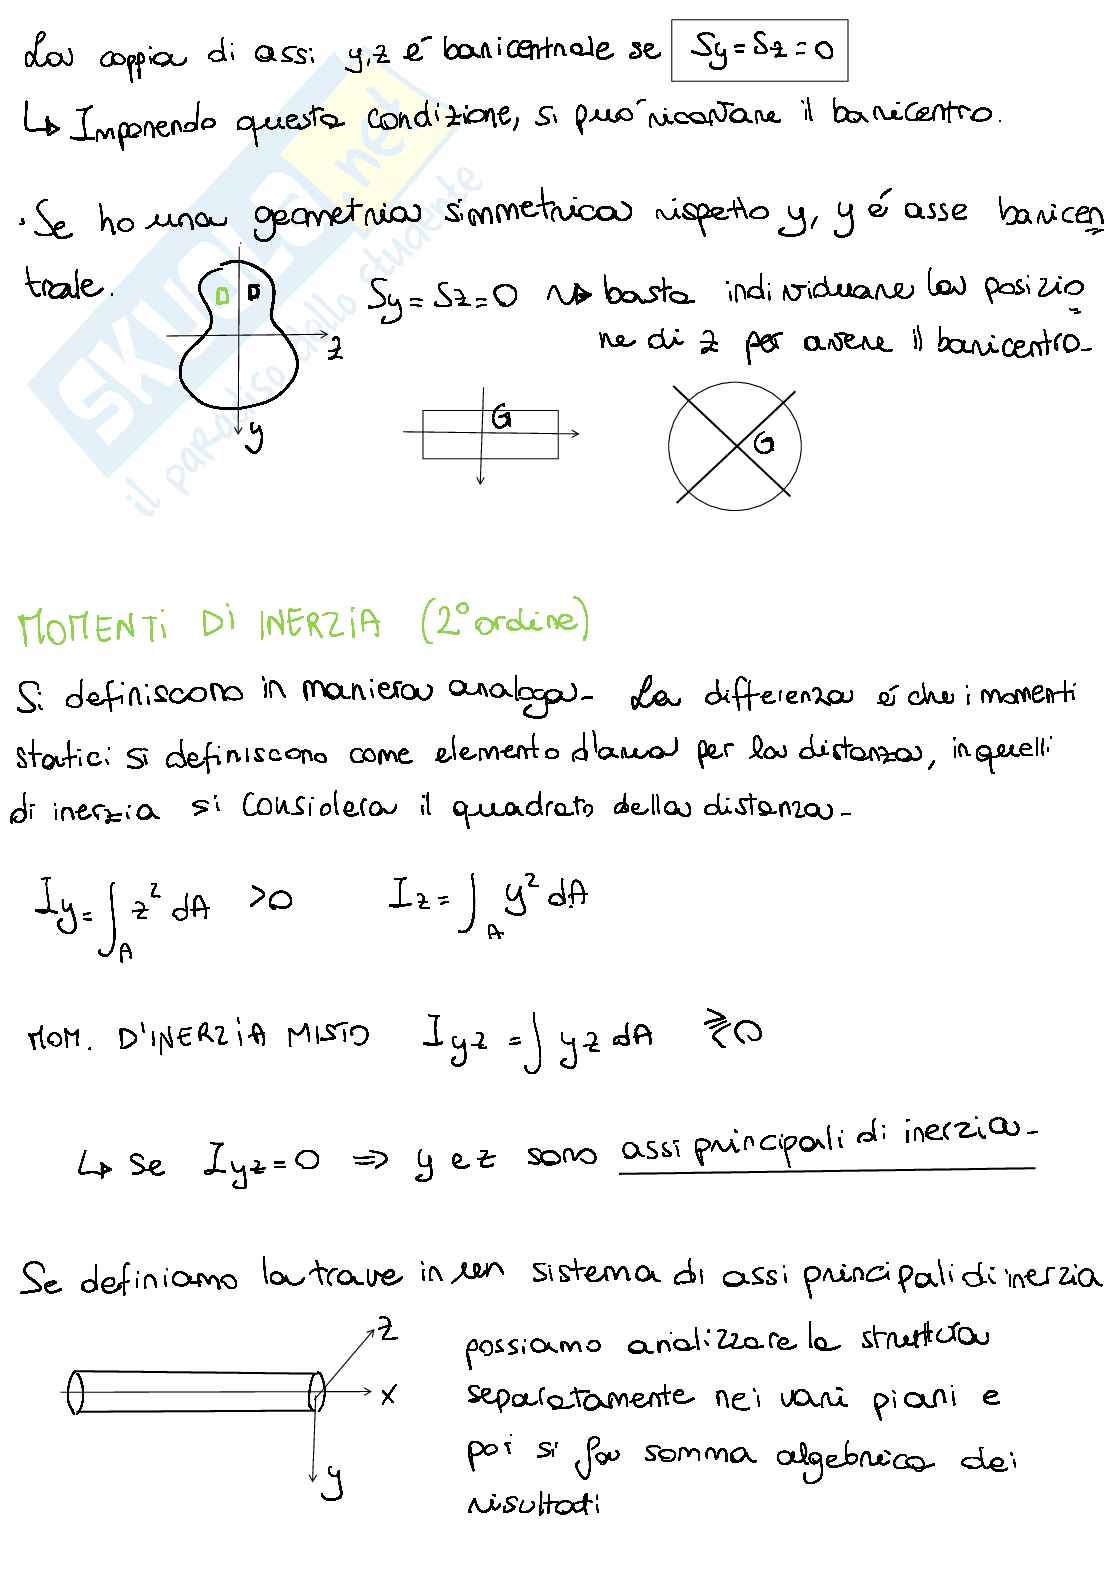 La coppia di assi y,z é baricentrale se Sy = Sz = 0
↳ Imponendo questa condizione, si può ricavare il baricentro.
· Se ho una geometria simmetrica rispetto y, y é asse baricen
trale.
Sy = Sz = 0 ⇝ basta individuare la posizio
ne di z per avere il baricentro-
z
y
G
G
MOMENTI DI INERZIA (2° ordine)
Si definiscono in maniera analoga- La differenza é che i momenti
statici si definiscono come elemento d'area per la distanza, in quelli
di inerzia si considera il quadrato della distanza-
Iy = ∫A z² dA >0 Iz = ∫A y² dA
MOM. D'INERZIA MISTO Iyz = ∫ yz dA ⪌0
↳ se Iyz = 0 ⇒ y e z sono assi principali di inerzia-
Se definiamo la trave in un sistema di assi principali di inerzia
possiamo analizzare la struttura
separatamente nei vari piani e
poi si fa somma algebrica dei
risultati
z
x
y
SKUOLA.net
il paradiso dello studente